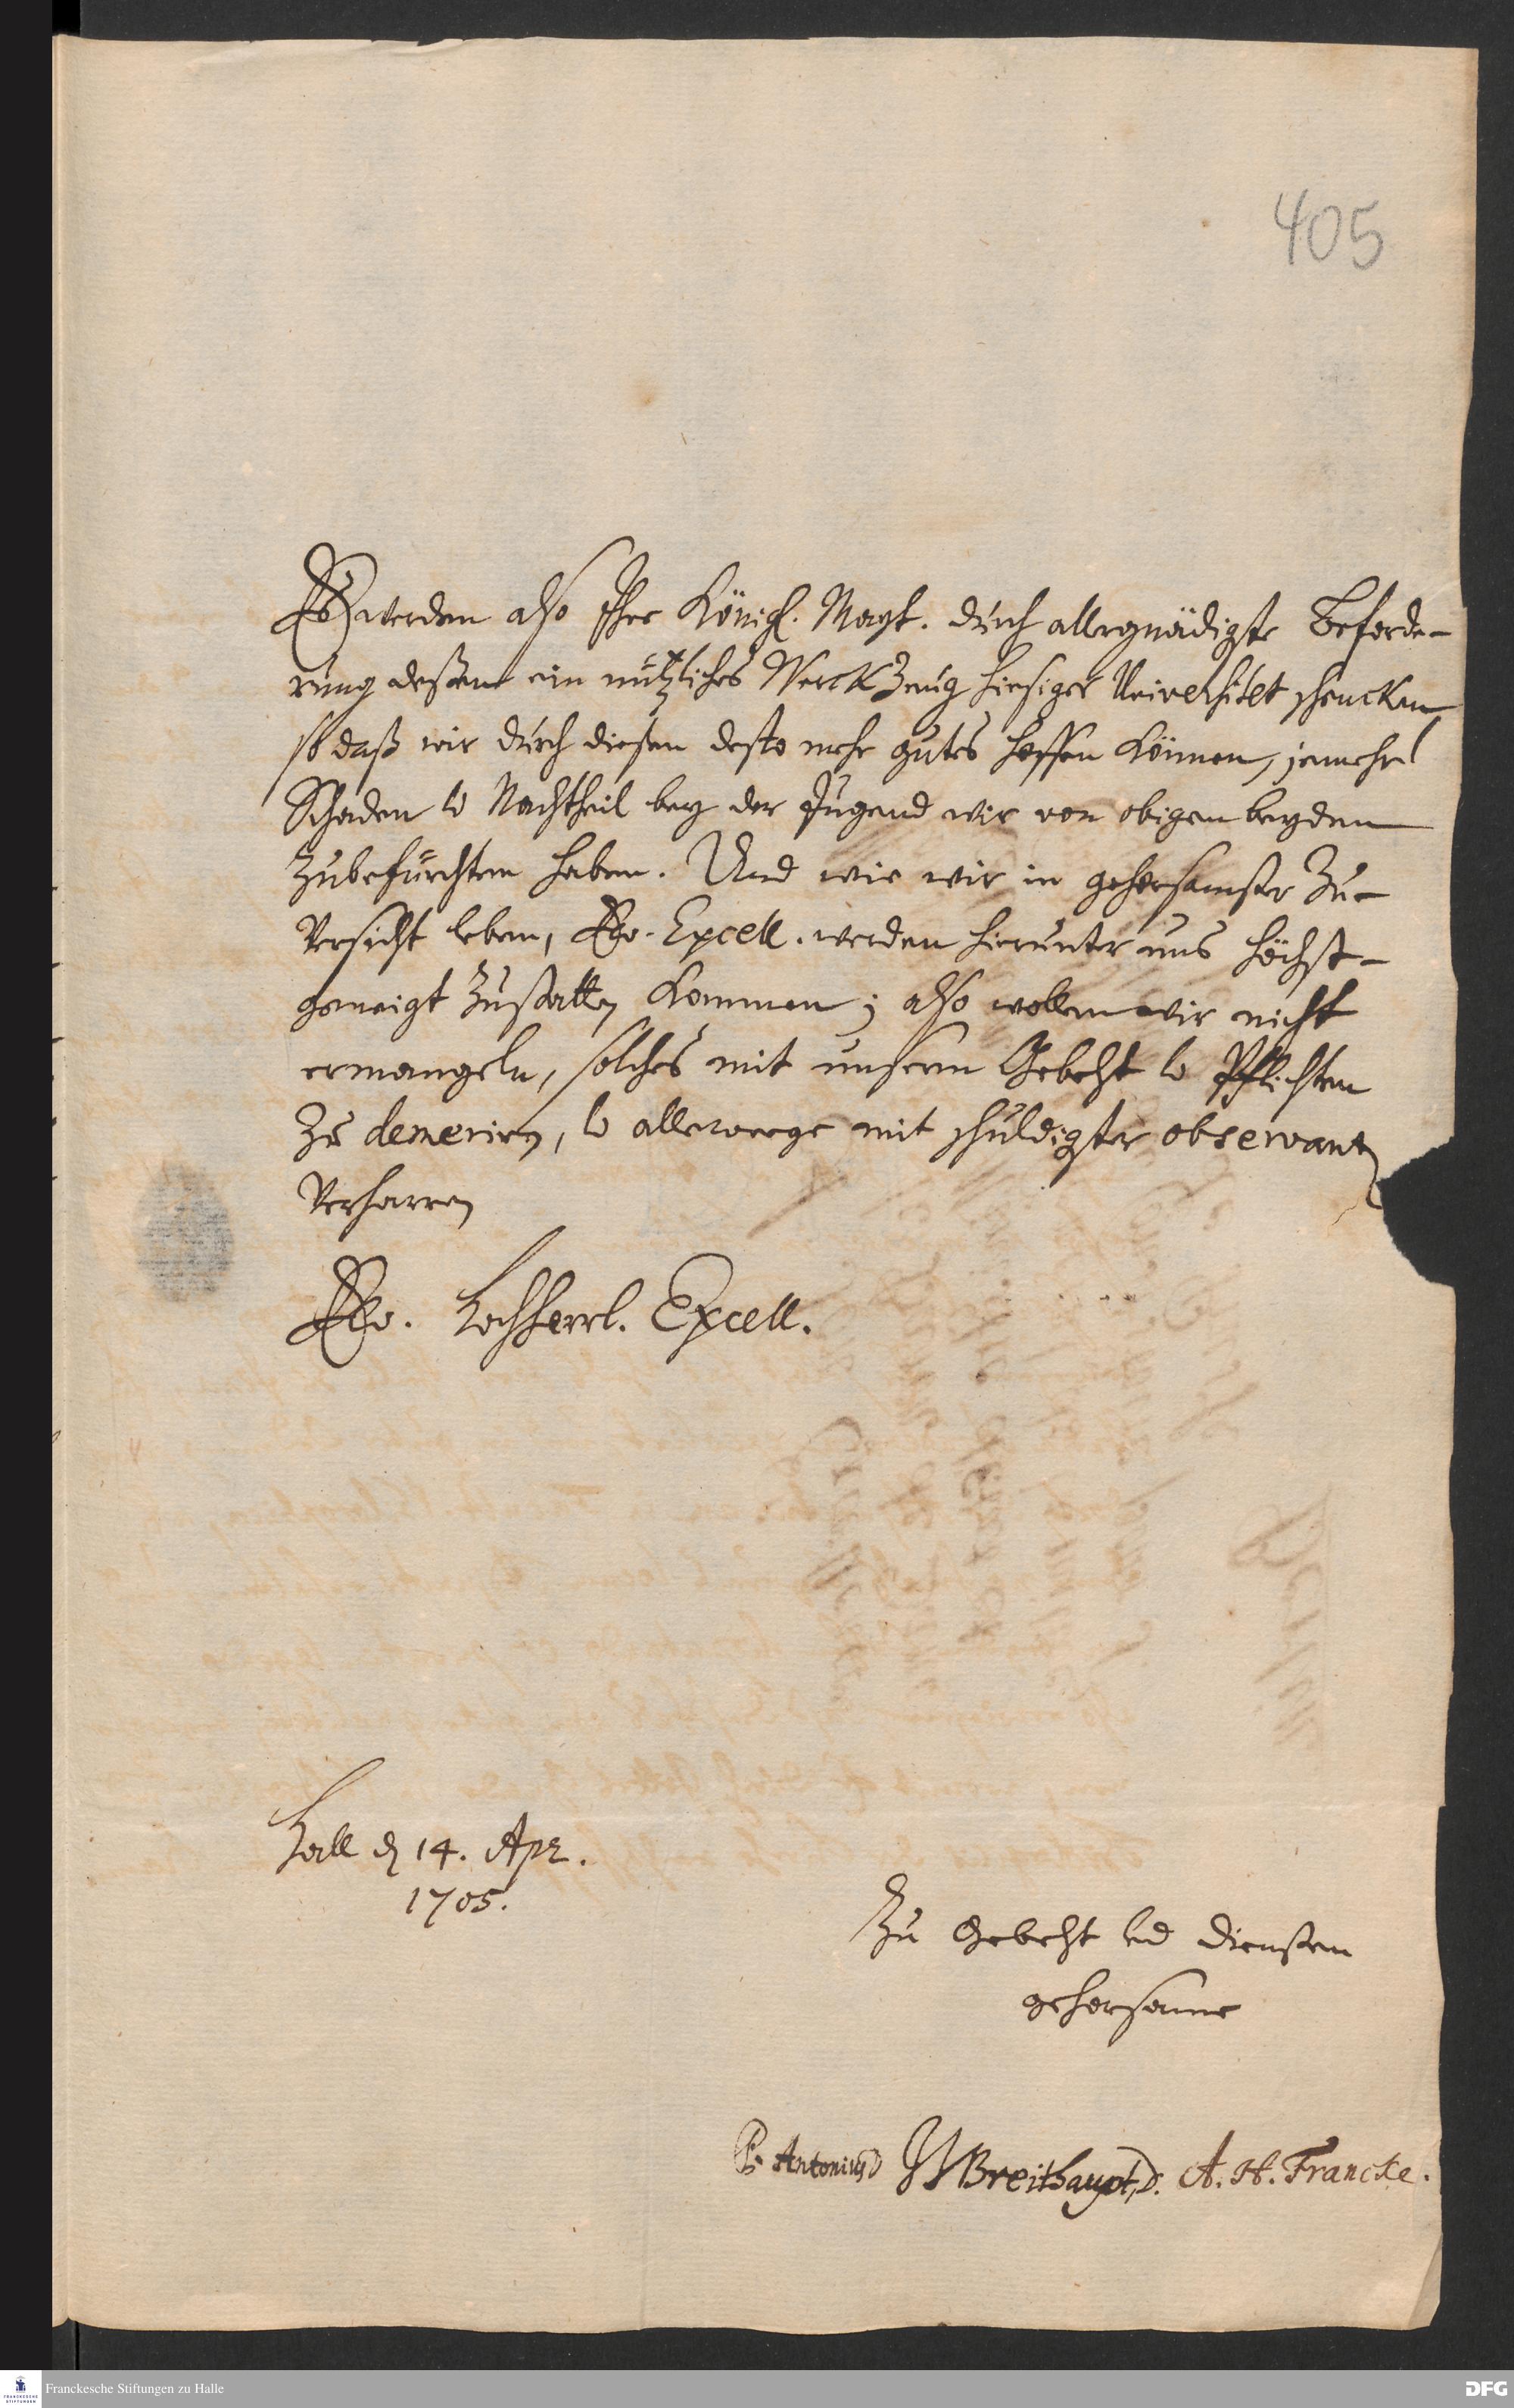 405
Es werden also Ihre Königl. Mayt. durch allergnädigste Beforde-
rung deßen ein nützliches Werckzeug hiesiger Universitet schencken,
so daß wir durch diesen desto mehr gutes hoffen können, jemehr
Schaden u Nachtheil bey der Jugend wir von obigen beyden
zubefürchten haben. Und wie wir in gehorsamster Zu-
versicht leben, Ew. Excell. werden hierunter uns höchst-
geneigt zustatten kommen; also wollen wir nicht
ermangeln, solches mit unserm Gebeht u Pflichten
zu demeriren, u allewege mit schuldigster observantz
verharren
Ew. Hochherrl. Excell.
Hall d 14. Apr.
1705.
Zu Gebeht und Diensten
gehorsame
P. Antonius D JJBreithaupt, D. A. H. Francke.
Franckesche Stiftungen zu Halle
DFG